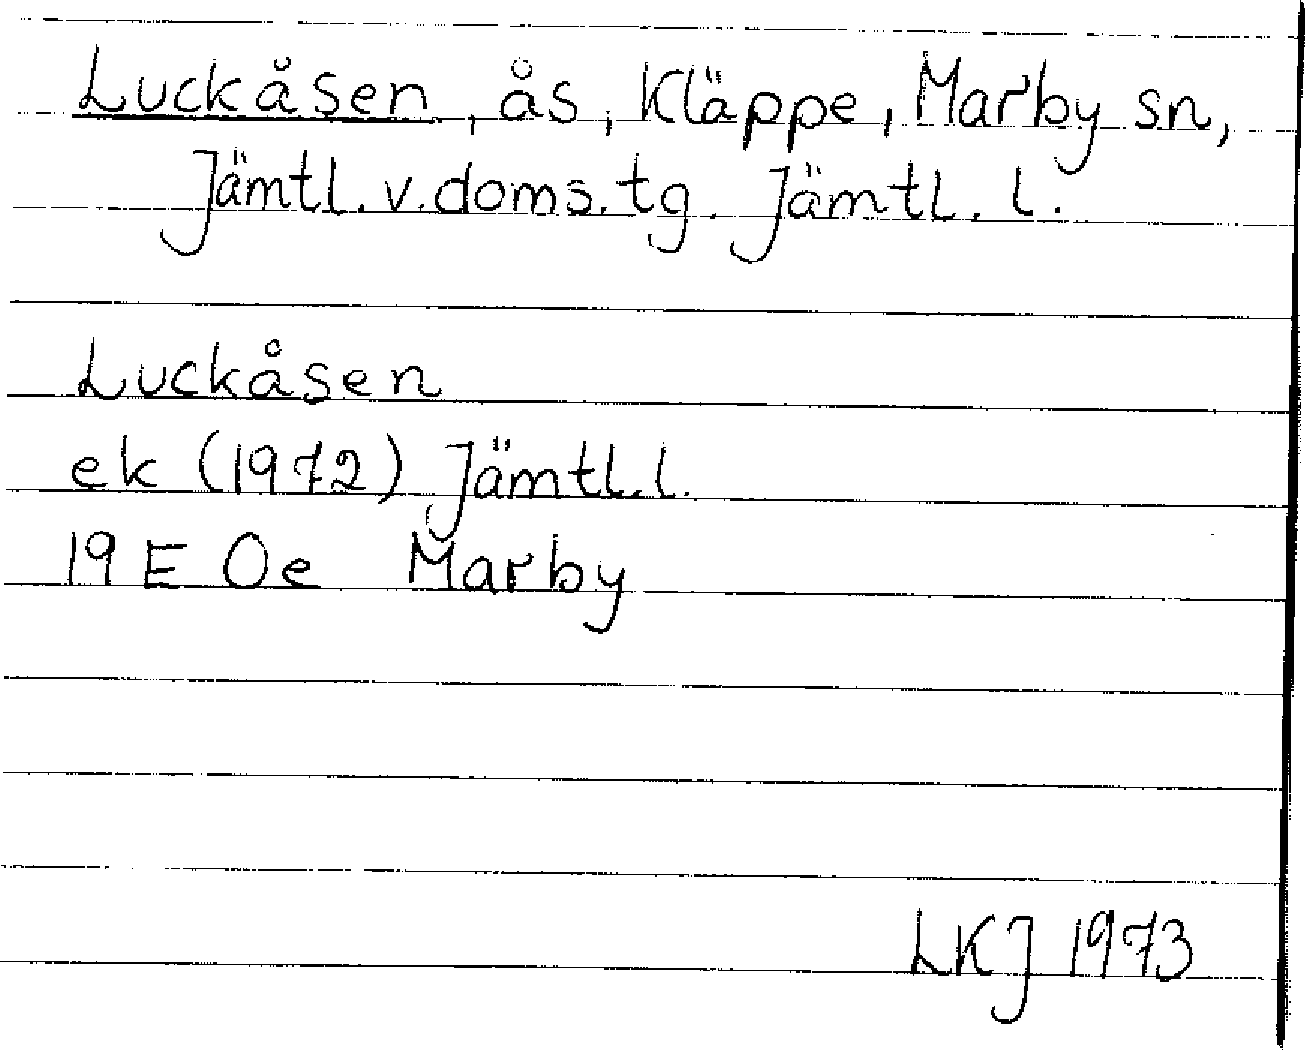 Luckåsen, ås, Kläppe, Marby sn,
Jämtl. v. doms. tg. Jämtl. l.
Luckåsen
ek (1972) Jämtl. l.
19 E 0e Marby
LKJ 1973